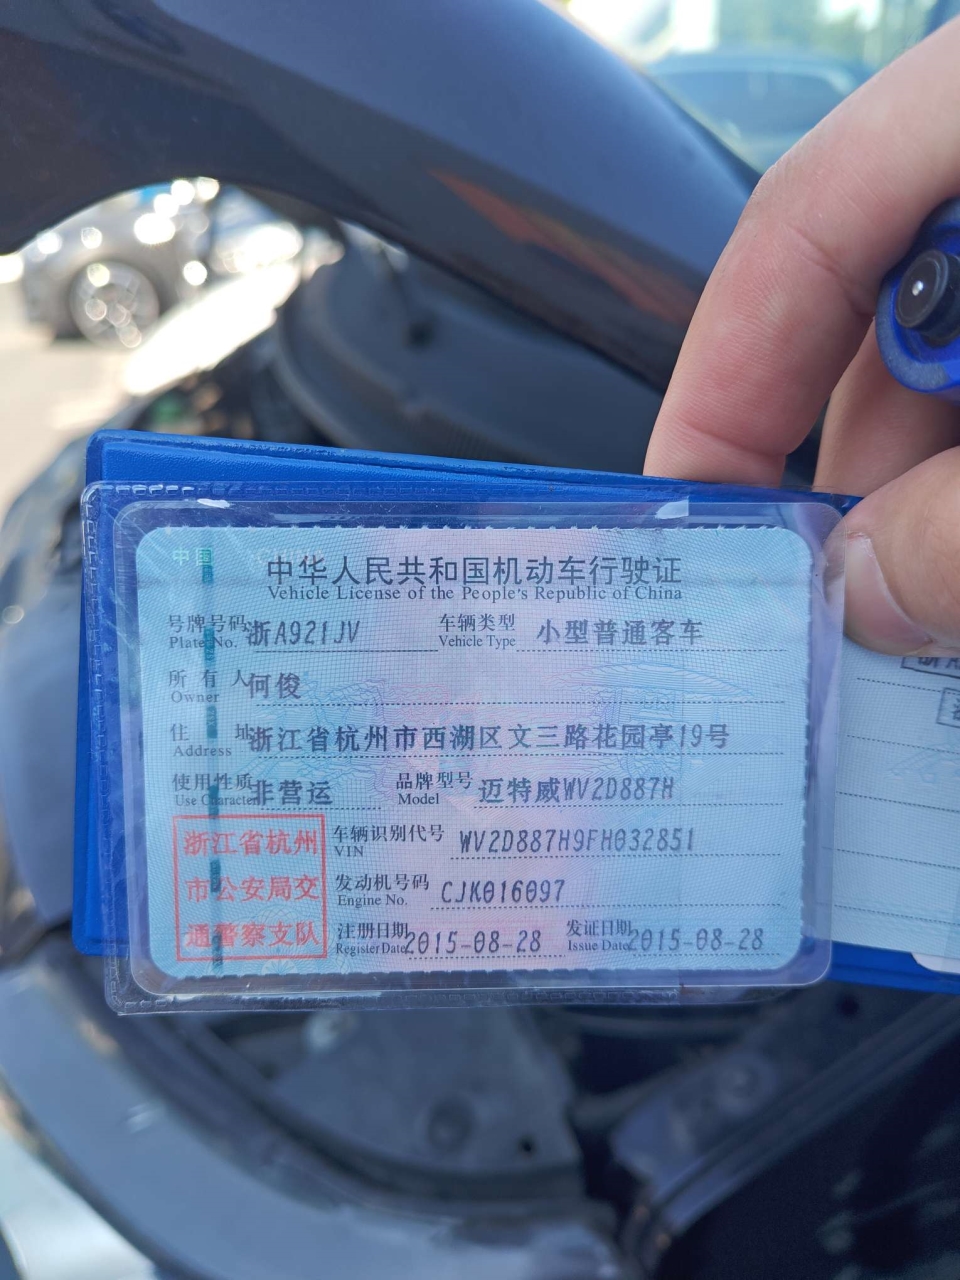 中国
中华人民共和国机动车行驶证
Vehicle License of the People's Republic of China
号牌号码 浙A921JV 车辆类型 小型普通客车
Plate No. Vehicle Type
所有人 何俊
Owner
住址 浙江省杭州市西湖区文三路花园亭19号
Address
使用性质 非营运 品牌型号 迈特威WV2D887H
Use Character Model
浙江省杭州
市公安局交
通警察支队
车辆识别代号 WV2D887H9FH032851
VIN
发动机号码 CJK016097
Engine No.
注册日期 2015-08-28 发证日期 2015-08-28
Register Date Issue Date